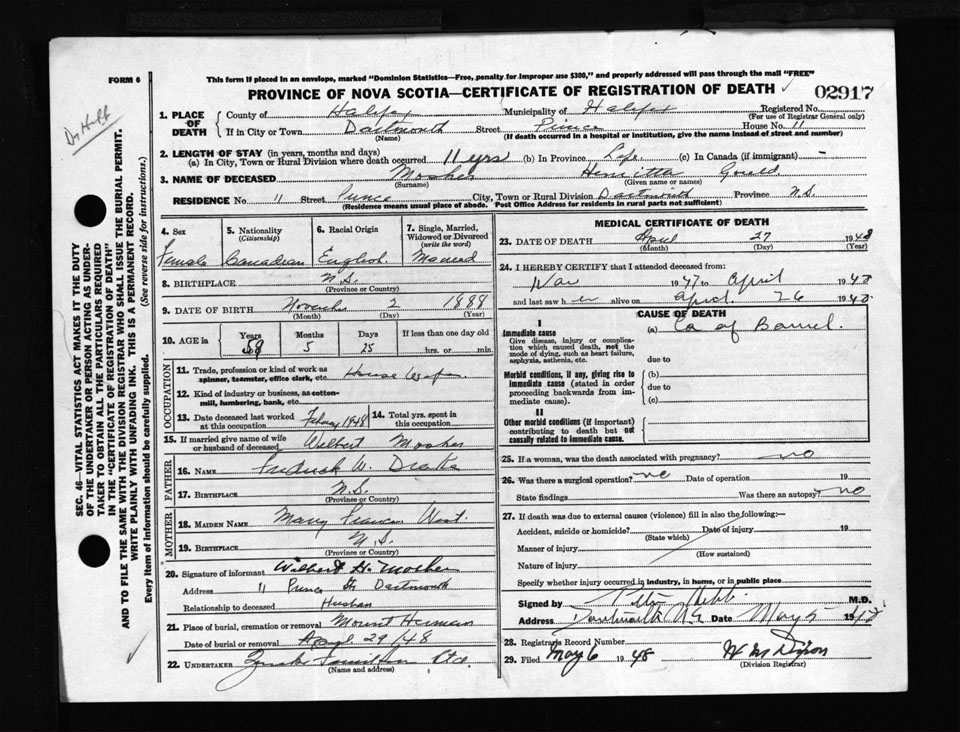 FORM 6
This form if placed in an envelope, marked "Dominion Statistics—Free, penalty for improper use $300," and properly addressed will pass through the mail "FREE"
PROVINCE OF NOVA SCOTIA—CERTIFICATE OF REGISTRATION OF DEATH
02917
1. PLACE OF DEATH
County of Halifax Municipality of Halifax Registered No.
(For use of Registrar General only)
If in City or Town Dartmouth Street Prince House No. 11
(Name) (If death occurred in a hospital or institution, give the name instead of street and number)
2. LENGTH OF STAY (in years, months and days)
(a) In City, Town or Rural Division where death occurred 11 yrs (b) In Province Life (c) In Canada (if immigrant) -
3. NAME OF DECEASED Mosher Henrietta Gould
(Surname) (Given name or names)
RESIDENCE No. 11 Street Prince City, Town or Rural Division Dartmouth Province N.S.
(Residence means usual place of abode. Post Office Address for residents in rural parts not sufficient)
4. Sex 5. Nationality (Citizenship) 6. Racial Origin 7. Single, Married, Widowed or Divorced (write the word)
Female Canadian English Married
8. BIRTHPLACE N.S.
(Province or Country)
9. DATE OF BIRTH November 2 1888
(Month) (Day) (Year)
10. AGE in Years Months Days If less than one day old
5 25 hrs. or min.
OCCUPATION
11. Trade, profession or kind of work as spinner, teamster, office clerk, etc. House Wife
12. Kind of industry or business, as cotton-mill, lumbering, bank, etc.
13. Date deceased last worked at this occupation 1948 14. Total yrs. spent in this occupation
15. If married give name of wife or husband of deceased Wilbert Mosher
FATHER
16. NAME Fredrick W. Drake
17. BIRTHPLACE N.S.
(Province or Country)
MOTHER
18. MAIDEN NAME Mary Frances West
19. BIRTHPLACE N.S.
(Province or Country)
20. Signature of informant Wilbert H. Mosher
Address 11 Prince St. Dartmouth
Relationship to deceased Husban
21. Place of burial, cremation or removal Mount Herman
Date of burial or removal April 29/48
22. UNDERTAKER Ltd.
(Name and address)
MEDICAL CERTIFICATE OF DEATH
23. DATE OF DEATH April 27 1948
(Month) (Day) (Year)
24. I HEREBY CERTIFY that I attended deceased from:
1947 to April 1948
and last saw h er alive on April 26 1948
CAUSE OF DEATH
I
Immediate cause
Give disease, injury or complication which caused death, not the mode of dying, such as heart failure, asphyxia, asthenia, etc.
(a) Ca of Bowel.
due to
Morbid conditions, if any, giving rise to immediate cause (stated in order proceeding backwards from immediate cause).
(b)
due to
(c)
II
Other morbid conditions (if important) contributing to death but not causally related to immediate cause.
25. If a woman, was the death associated with pregnancy? no
26. Was there a surgical operation? no Date of operation 19
State findings Was there an autopsy? no
27. If death was due to external causes (violence) fill in also the following:—
Accident, suicide or homicide? Date of injury 19
(State which)
Manner of injury
(How sustained)
Nature of injury
Specify whether injury occurred in industry, in home, or in public place
Signed by M.D.
Address Dartmouth N.S. Date May 5 1948
28. Registrar's Record Number
29. Filed May 6 1948 W M Dixon
(Division Registrar)
SEC. 46—VITAL STATISTICS ACT MAKES IT THE DUTY
OF THE UNDERTAKER OR PERSON ACTING AS UNDER-
TAKER TO OBTAIN ALL THE PARTICULARS REQUIRED
IN THE "CERTIFICATE OF REGISTRATION OF DEATH"
AND TO FILE THE SAME WITH THE DIVISION REGISTRAR WHO SHALL ISSUE THE BURIAL PERMIT.
WRITE PLAINLY WITH UNFADING INK. THIS IS A PERMANENT RECORD.
Every item of information should be carefully supplied. (See reverse side for instructions.)